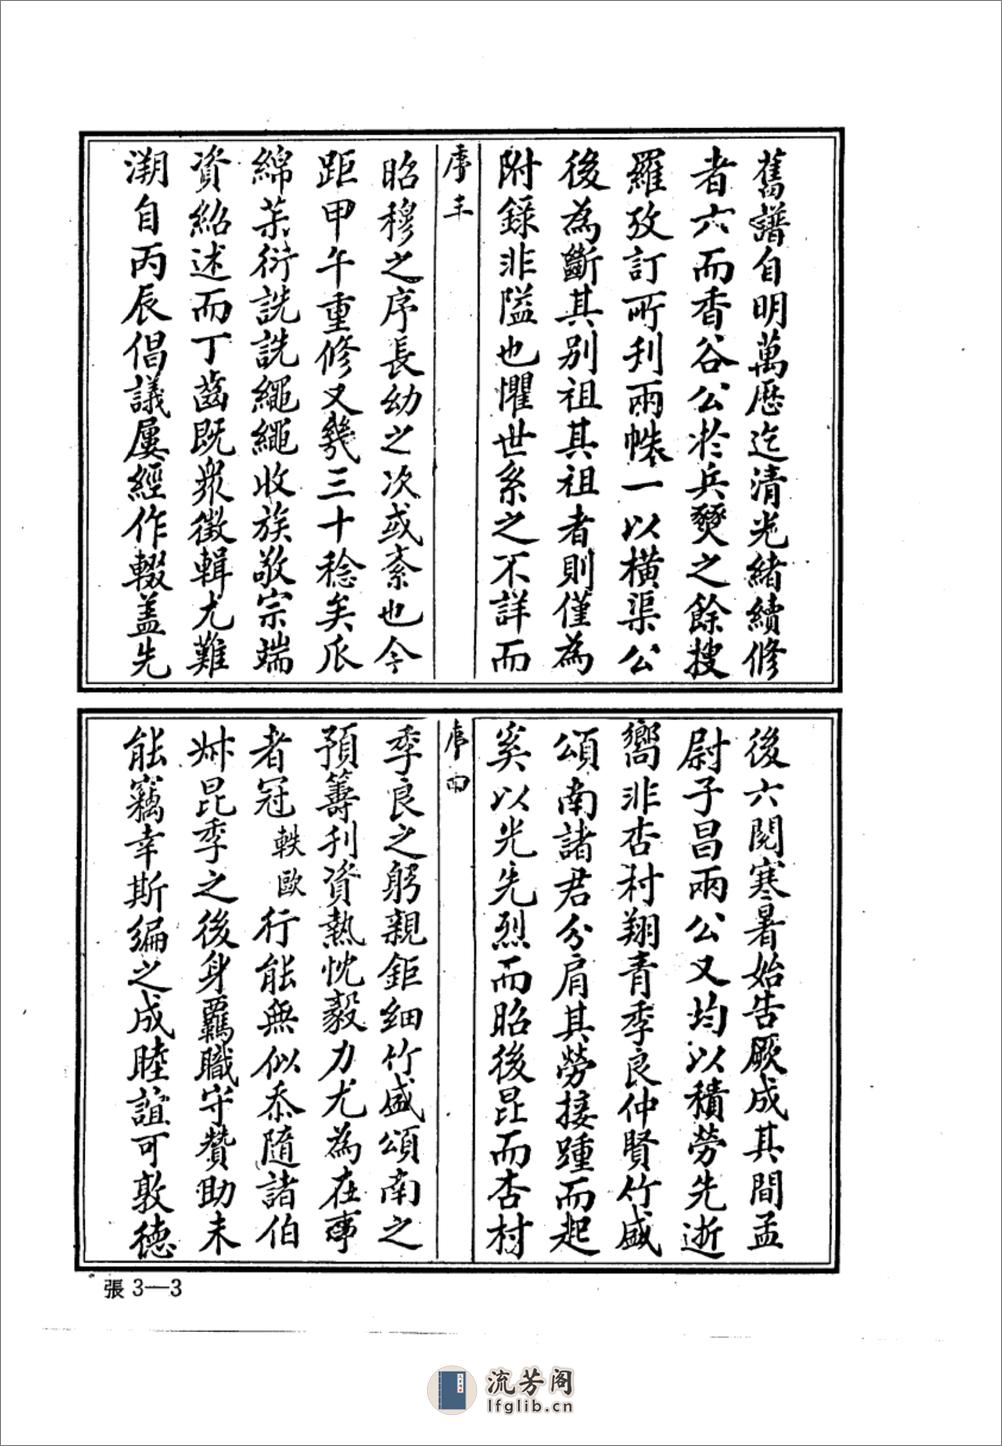 舊譜自明萬厯迄清光緒續修
者六而香谷公於兵燹之餘搜
羅攷訂所刋兩帙一以橫渠公
後為斷其別祖其祖者則僅為
附錄非隘也懼世系之不詳而
序
昭穆之序長幼之次或紊也今
距甲午重修又幾三十稔矣瓜
綿茶衍詵詵繩繩收族敬宗端
資紹述而丁齒既眾徵輯尤難
溯自丙辰倡議屢經作輟盖先
後六閱寒暑始告厥成其間孟
尉子昌兩公又均以積勞先逝
嚮非杏村翔青季良仲賢竹盛
頌南諸君分肩其勞接踵而起
奚以光先烈而昭後昆而杏村
序
季良之躬親鉅細竹盛頌南之
預籌刋資熱忱毅力尤為在事
者冠軼歐行能無似忝隨諸伯
叔昆季之後身羈職守贊助未
能竊幸斯編之成睦誼可敦德
張3—3
流芳阁
lfglib.cn